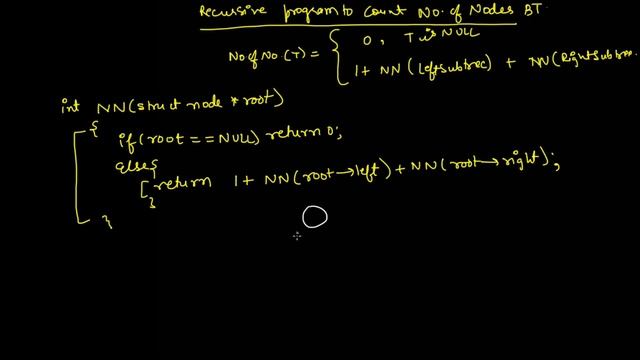 Recursive program to count No. of Nodes BT.
No of No. (T) = { 0 , T is NULL
1 + NN (Left Subtree) + NN (Right Subtree.
int NN (struct node * root)
{
if (root == NULL) return 0;
else {
[ return 1 + NN (root → left) + NN (root → right);
}
}